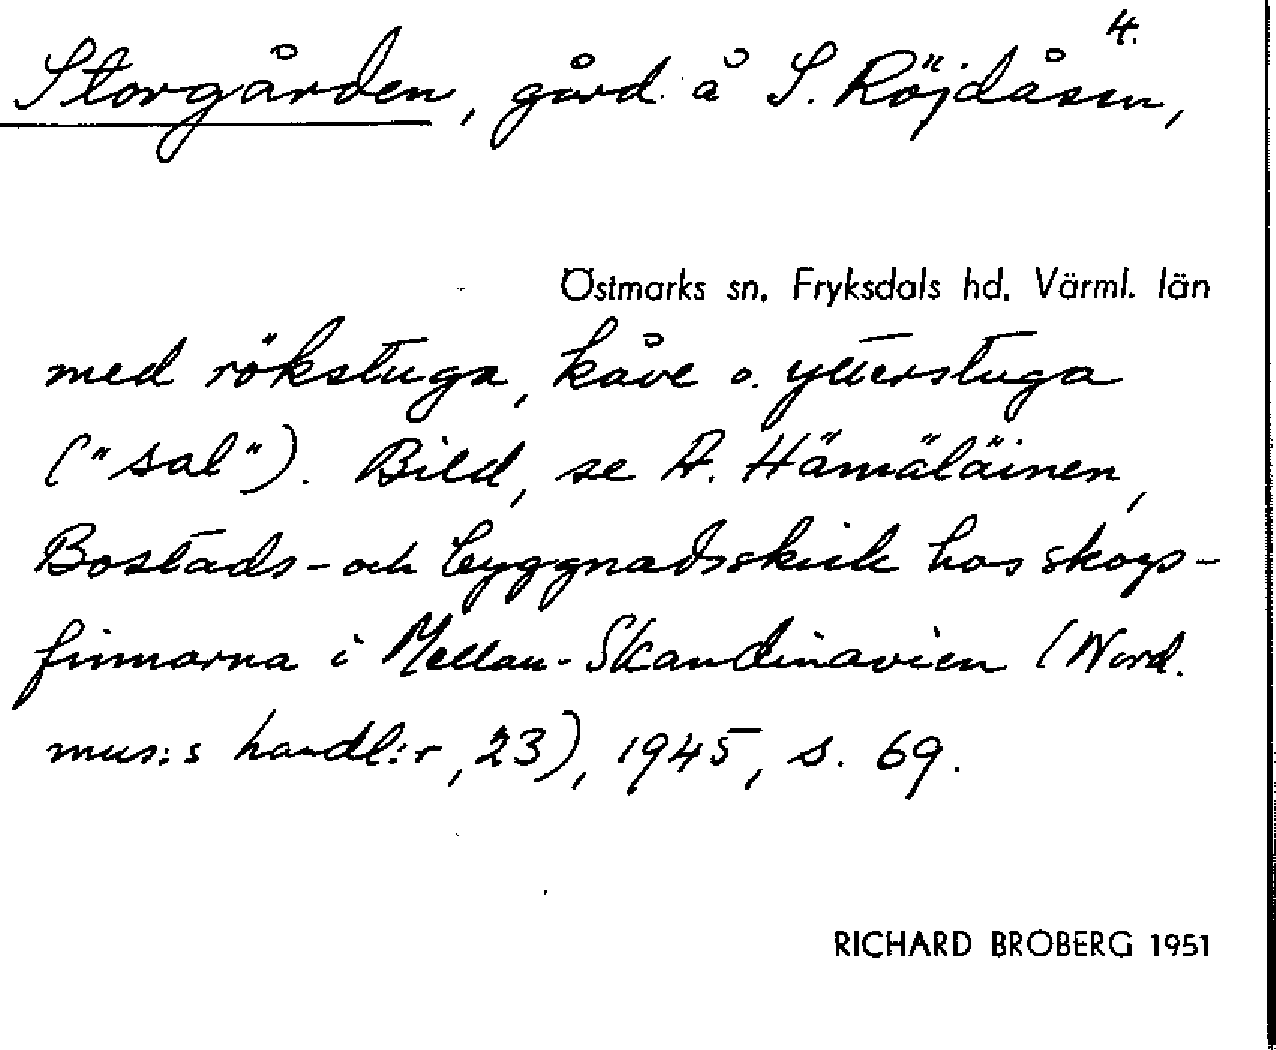 4.
Storgården, gård å S. Röjdåsen,
Östmarks sn. Fryksdals hd. Värml. län
med rökstuga, kåve o. ytterstuga
("sal"). Bild, se A. Hämäläinen,
Bostads- och byggnadsskick hos skogs-
finnarna i Mellan-Skandinavien (Nord.
mus:s handl:r, 23), 1945, s. 69.
RICHARD BROBERG 1951